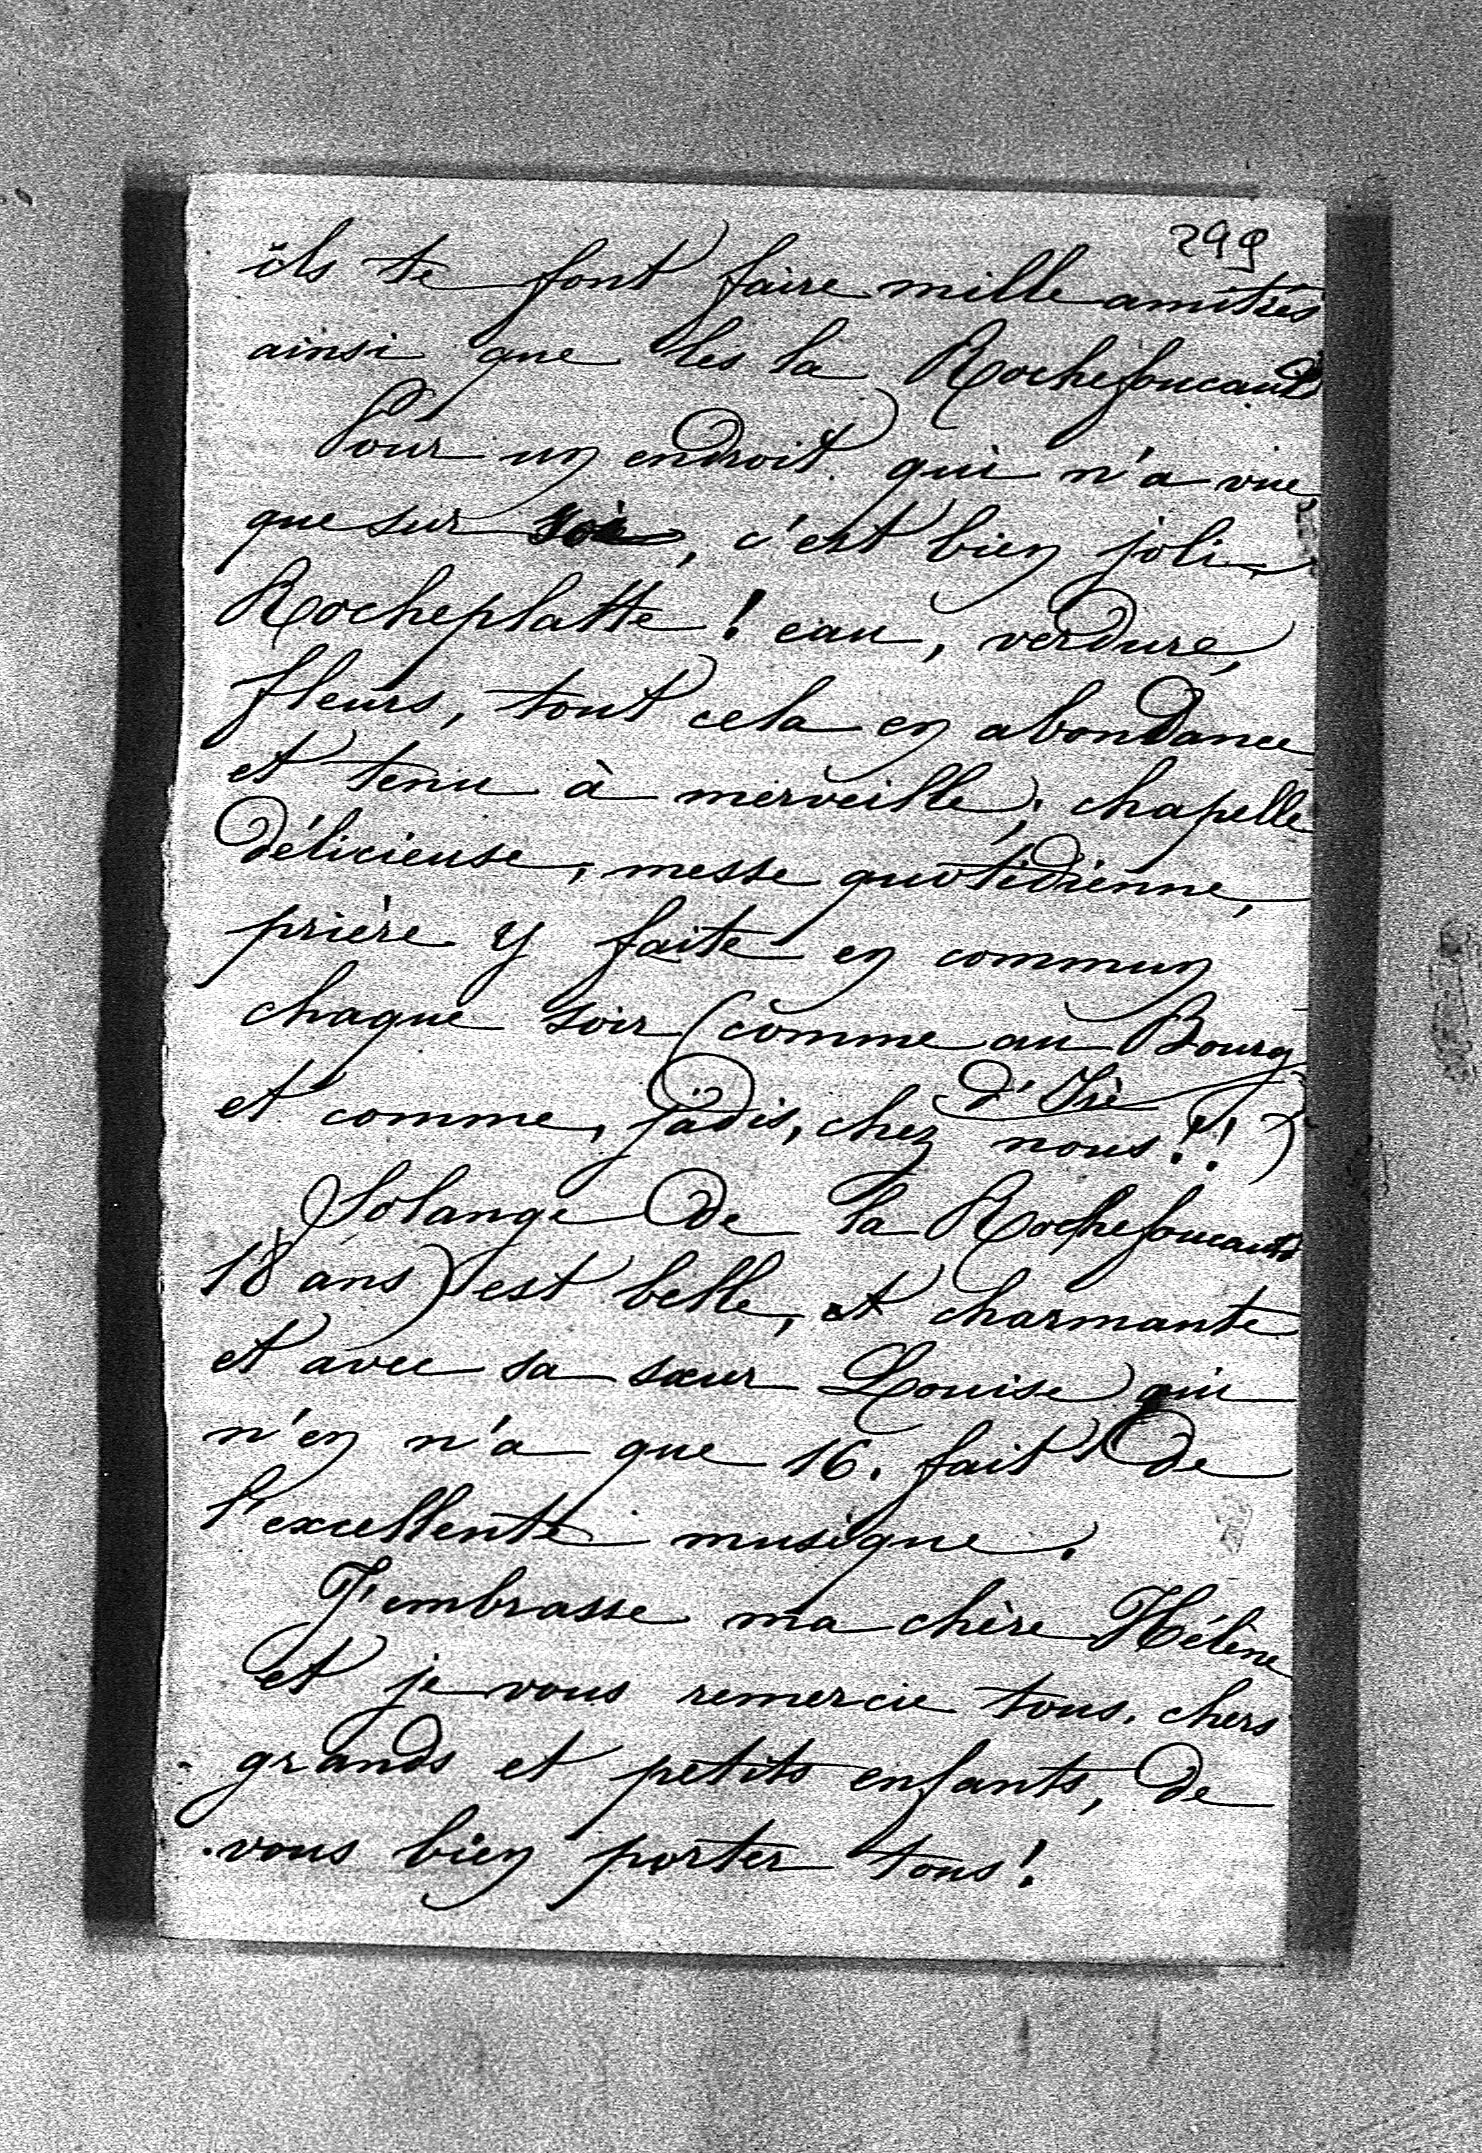 299
ils te font faire mille amitiés
ainsi que les la Rochefoucauld
Pour un endroit qui n'a vue
que sur soi, c'est bien joli
Rocheplatte ! eau, verdure,
fleurs, tout cela en abondance
et tenu à merveille, chapelle
délicieuse, messe quotidienne,
prière y faite en commun
chaque soir (comme au Bourg
d'Iré
et comme, jadis, chez nous!!)
Solange de la Rochefoucauld
18 ans) est belle, et charmante
et avec sa sœur Louise qui
n'en n'a que 16. fait de
l'excellente musique.
J'embrasse ma chère Hélène
et je vous remercie tous. chers
grands et petits enfants, de
vous bien porter tous!